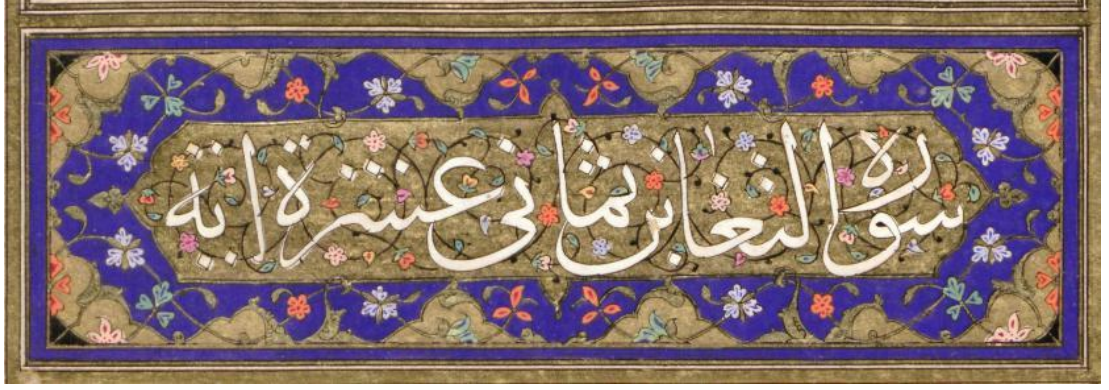 سورة التغابن ثمانی عشرة اية